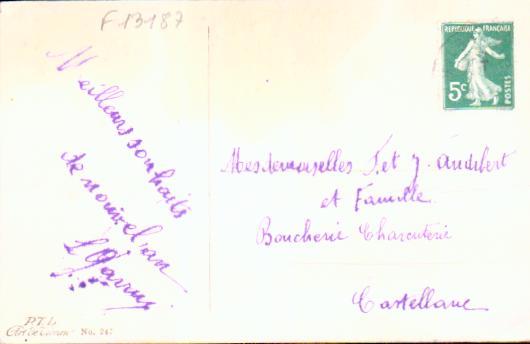 F 13187
Meilleurs souhaits
de nouvel an
RÉPUBLIQUE FRANÇAISE
5c
POSTES
Mesdemoiselles J. et J. Audibert
et Famille
Boucherie Charcuterie
Castellane
P.T.L.
No. 247